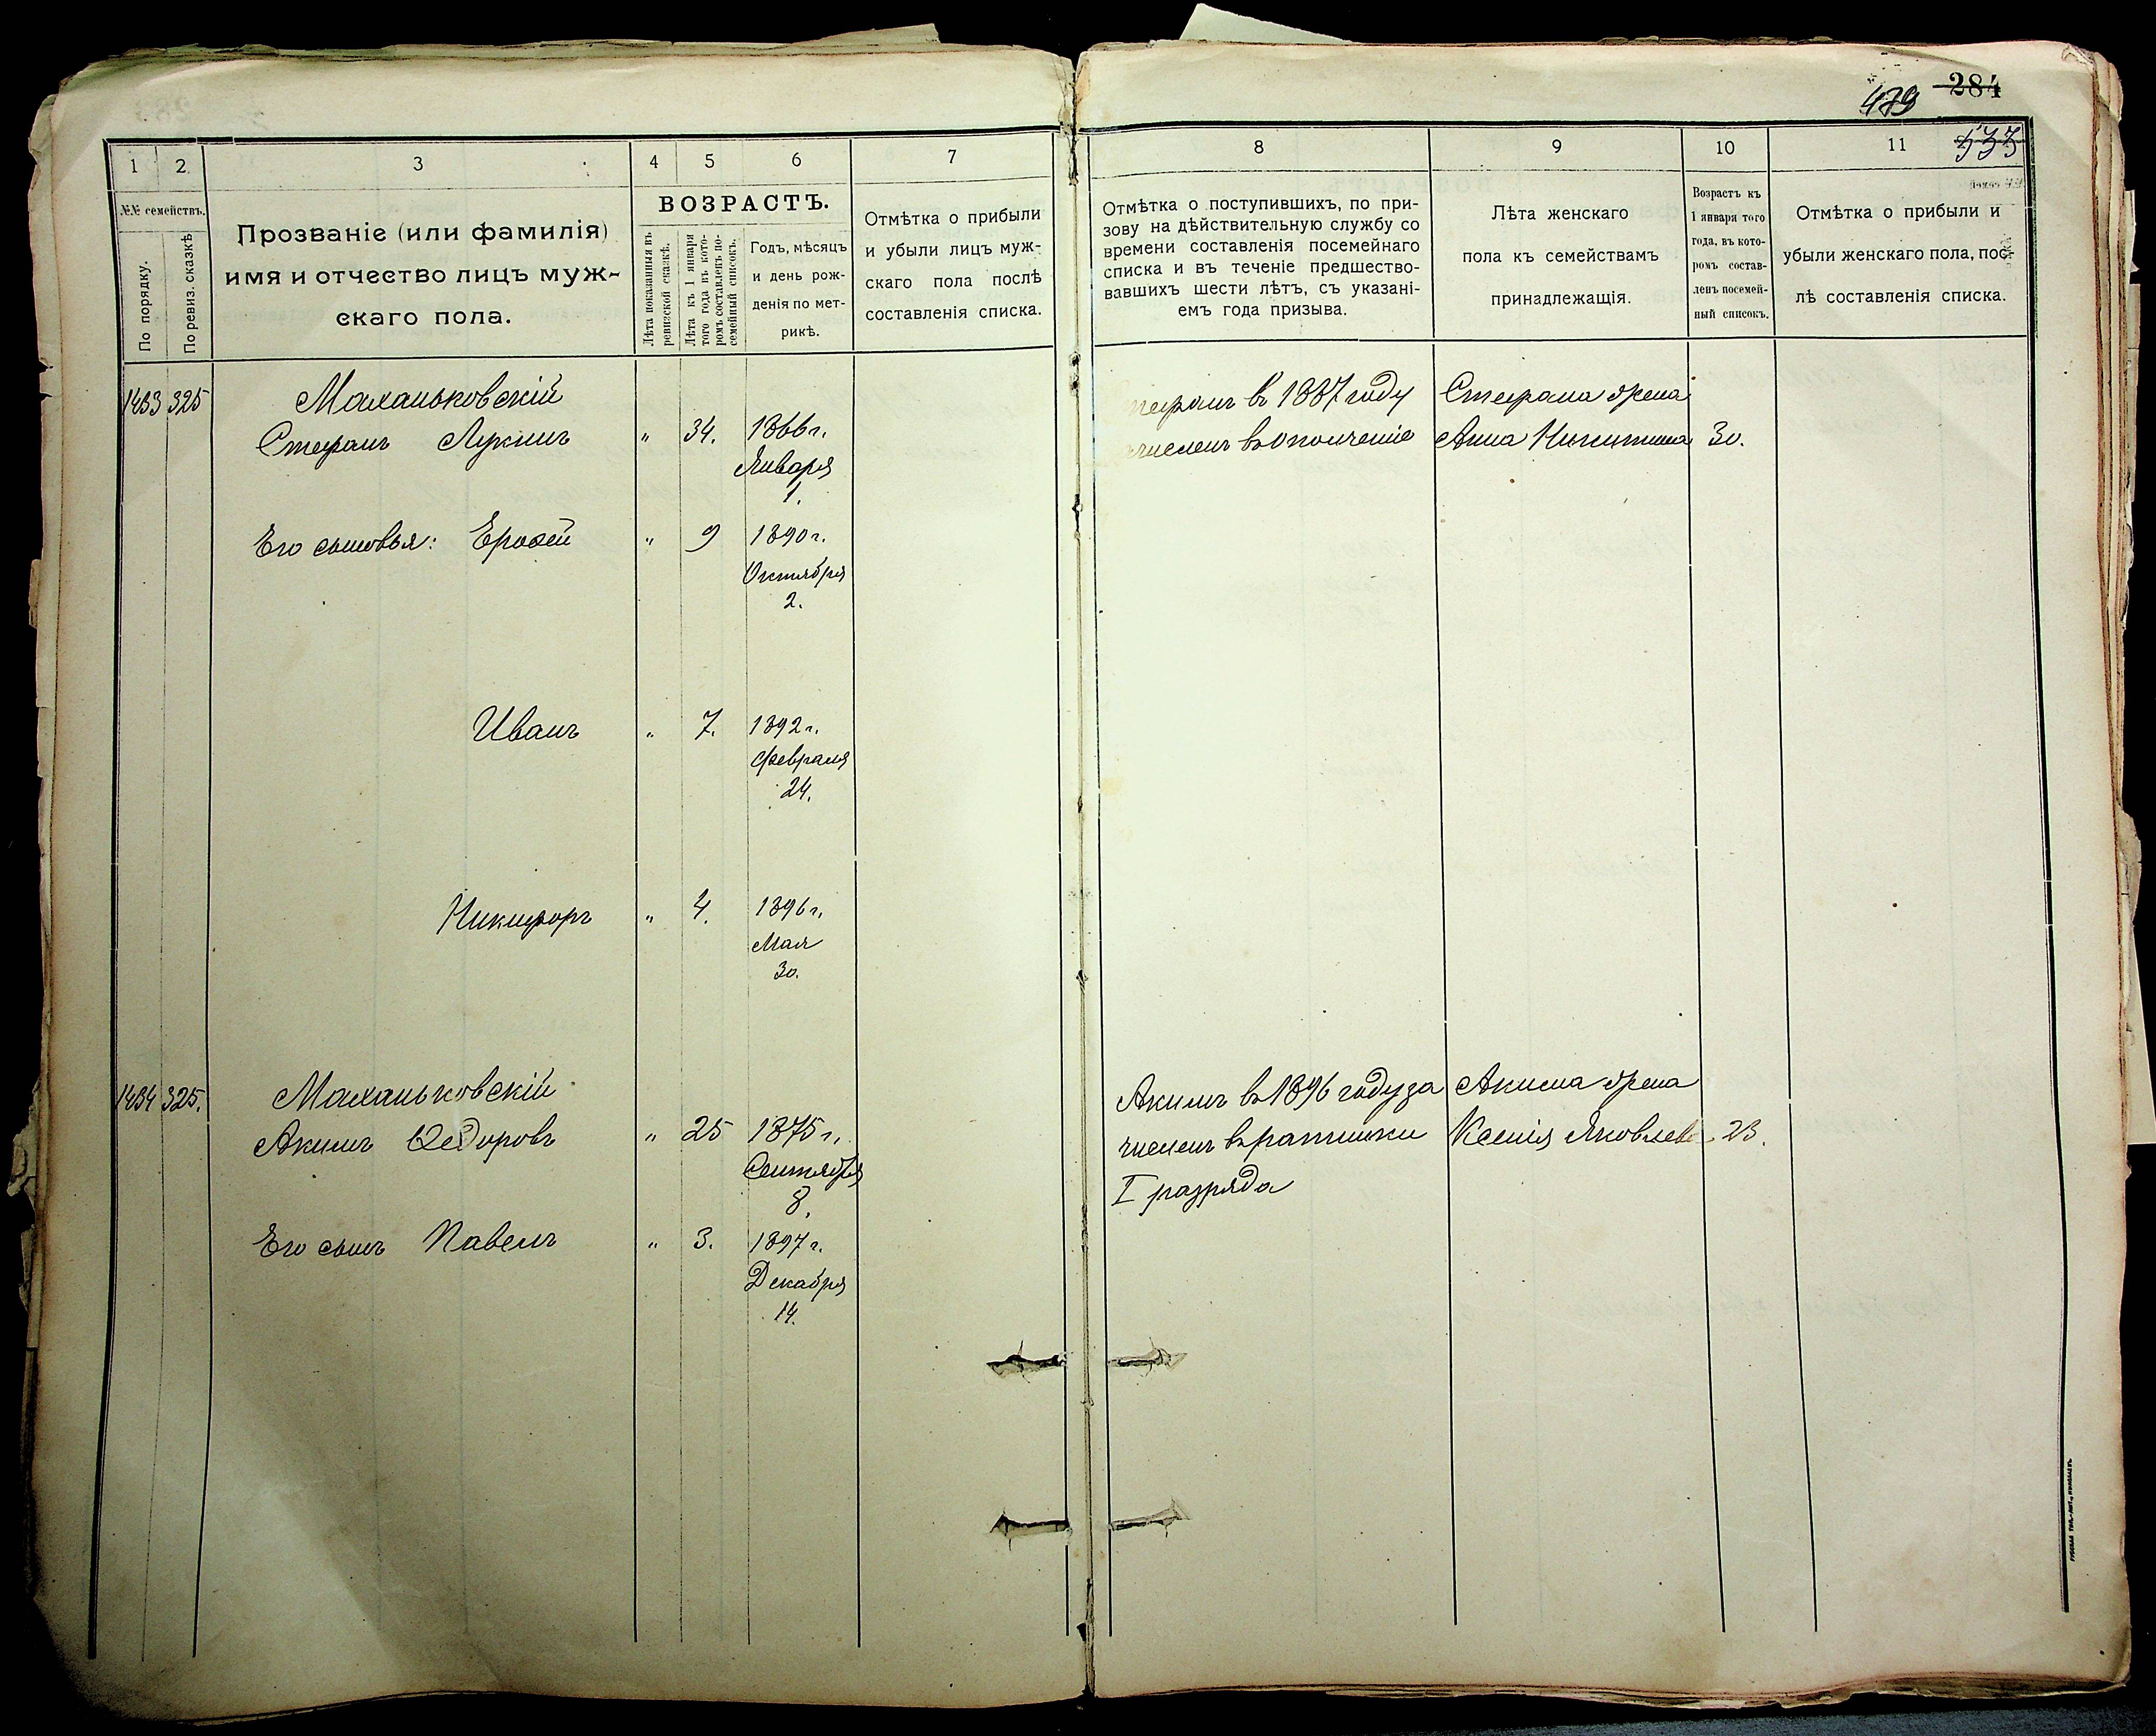 284
479
533
1
2
3
4
5
6
7
№№ семействъ.
По порядку.
По ревиз. сказкѣ
Прозваніе (или фамилія)
имя и отчество лицъ муж-
скаго пола.
ВОЗРАСТЪ.
Лѣта показанныя въ
ревизской сказкѣ.
Лѣта къ 1 января
того года въ кото-
ромъ составленъ по-
семейный списокъ.
Годъ, мѣсяцъ
и день рож-
денія по мет-
рикѣ.
Отмѣтка о прибыли
и убыли лицъ муж-
скаго пола послѣ
составленія списка.
8
9
10
11
Отмѣтка о поступившихъ, по при-
зову на дѣйствительную службу со
времени составленія посемейнаго
списка и въ теченіе предшество-
вавшихъ шести лѣтъ, съ указані-
емъ года призыва.
Лѣта женскаго
пола къ семействамъ
принадлежащія.
Возрастъ къ
1 января того
года, въ кото-
ромъ состав-
ленъ посемей-
ный списокъ.
Отмѣтка о прибыли и
убыли женскаго пола, пос-
лѣ составленія списка.
1433 325 Маханьковскій
Стефанъ Лукинъ " 34. 1866 г.
Января
1.
Его сыновья: Ерофей " 9 1890 г.
Октября
2.
Иванъ " 7. 1892 г.
Февраля
24.
Никифоръ " 4. 1896 г.
Мая
30.
1434 325. Маханьковскій
Акимъ Ѳедоровъ " 25 1875 г.
Сентября
8.
Его сынъ Павелъ " 3. 1897 г.
Декабря
14.
въ 1887 году Стефана жена
въ ополченіе Анна Никитина 30.
Акимъ въ 1896 году за Акима жена
численъ въ ратники Ксенія Яковлева 23.
I разряда